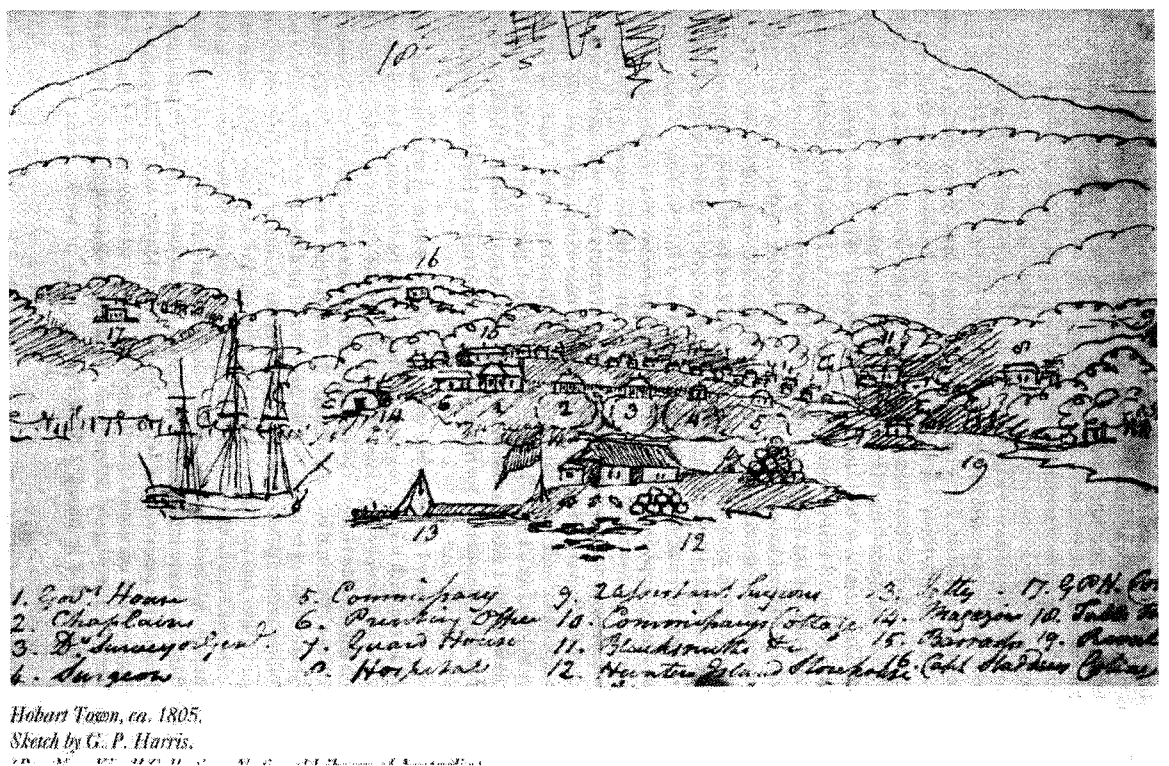 18
16
17
15
11
8
14
6
1
2
3
4
5
7
19
13
12
1. Govt. House
2. Chaplains
3. Dy. Surveyor Genl.
4. Surgeon
5. Commissary
6. Printing Office
7. Guard House
8. Hospital
9. 2 Assistant Surgeons
10. Commissarys Cottage
11. Blacksmiths &c
12. Hunters Island Storehouse
13. Jetty
14. Magazin
15. Barracks
16. Capt. Cottage
17. G.P.H.
18. Table
19.
Hobart Town, ca. 1805.
Sketch by G. P. Harris.
National Library of Australia